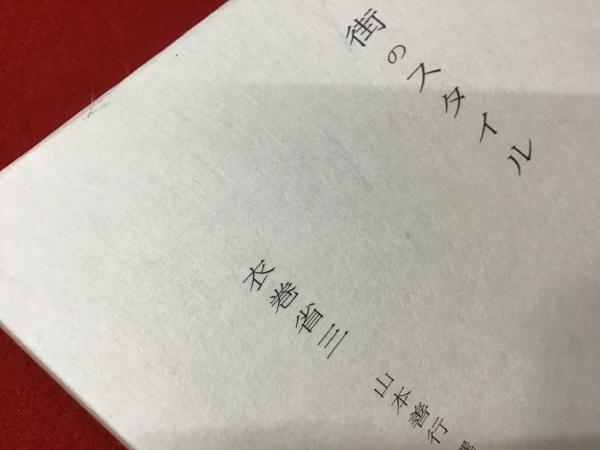 街のスタイル
衣巻省三
山本善行